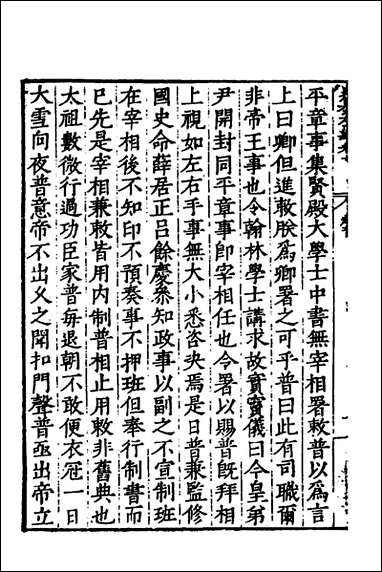 平章事集賢殿大學士中書無宰相署敕普以爲言
上曰卿但進敕朕爲卿署之可乎普曰此有司職爾
非帝王事也令翰林學士講求故實竇儀曰今皇弟
尹開封同平章事卽宰相任也令署以賜普旣拜相
上視如左右手事無大小悉咨决焉是日普兼監修
國史命薛居正吕餘慶叅知政事以副之不宣制班
在宰相後不知印不預奏事不押班但奉行制書而
已先是宰相兼敕皆用内制普相止用敕非舊典也
太祖數微行過功臣家普每退朝不敢便衣冠一日
大雪向夜普意帝不出乆之聞扣門聲普亟出帝立